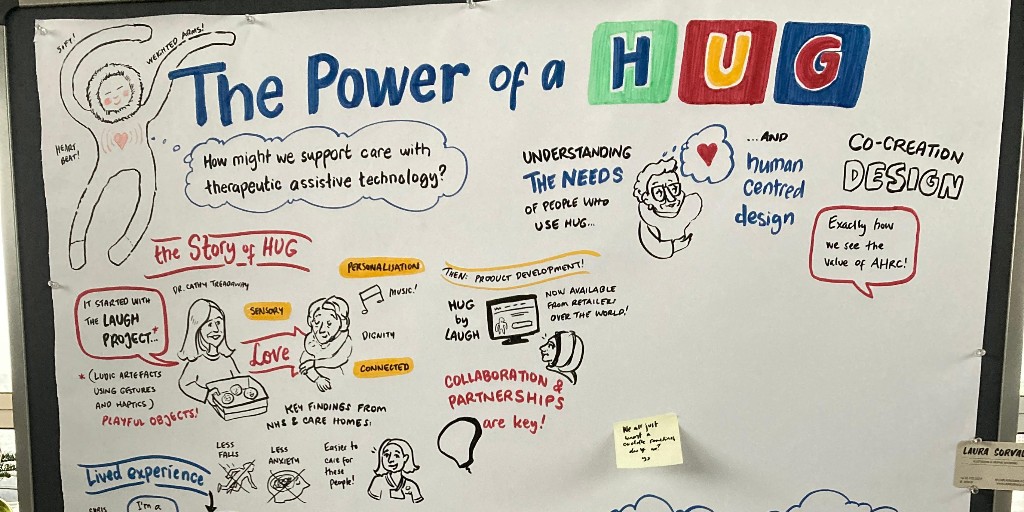 SOFT!
WEIGHTED ARMS!
HEART
BEAT!
The Power of a HUG
How might we support care with
therapeutic assistive technology?
UNDERSTANDING
THE NEEDS
OF PEOPLE WHO
USE HUG...
...AND
human
centred
design
CO-CREATION
DESIGN
Exactly how
we see the
value of AHRC!
the Story of HUG
IT STARTED WITH
THE LAUGH
PROJECT...*
DR. CATHY TREADAWAY
* (LUDIC ARTEFACTS
USING GESTURES
AND HAPTICS)
PLAYFUL OBJECTS!
SENSORY
Love
PERSONALISATION
MUSIC!
DIGNITY
CONNECTED
KEY FINDINGS FROM
NHS & CARE HOMES:
LESS
FALLS
LESS
ANXIETY
Easier to
care for
these
people!
THEN: PRODUCT DEVELOPMENT!
HUG
by
LAUGH
NOW AVAILABLE
FROM RETAILERS
OVER THE WORLD!
COLLABORATION &
PARTNERSHIPS
are key!
We all just
want a
Lived experience
CHRIS
I'm a
LAURA SORVAL